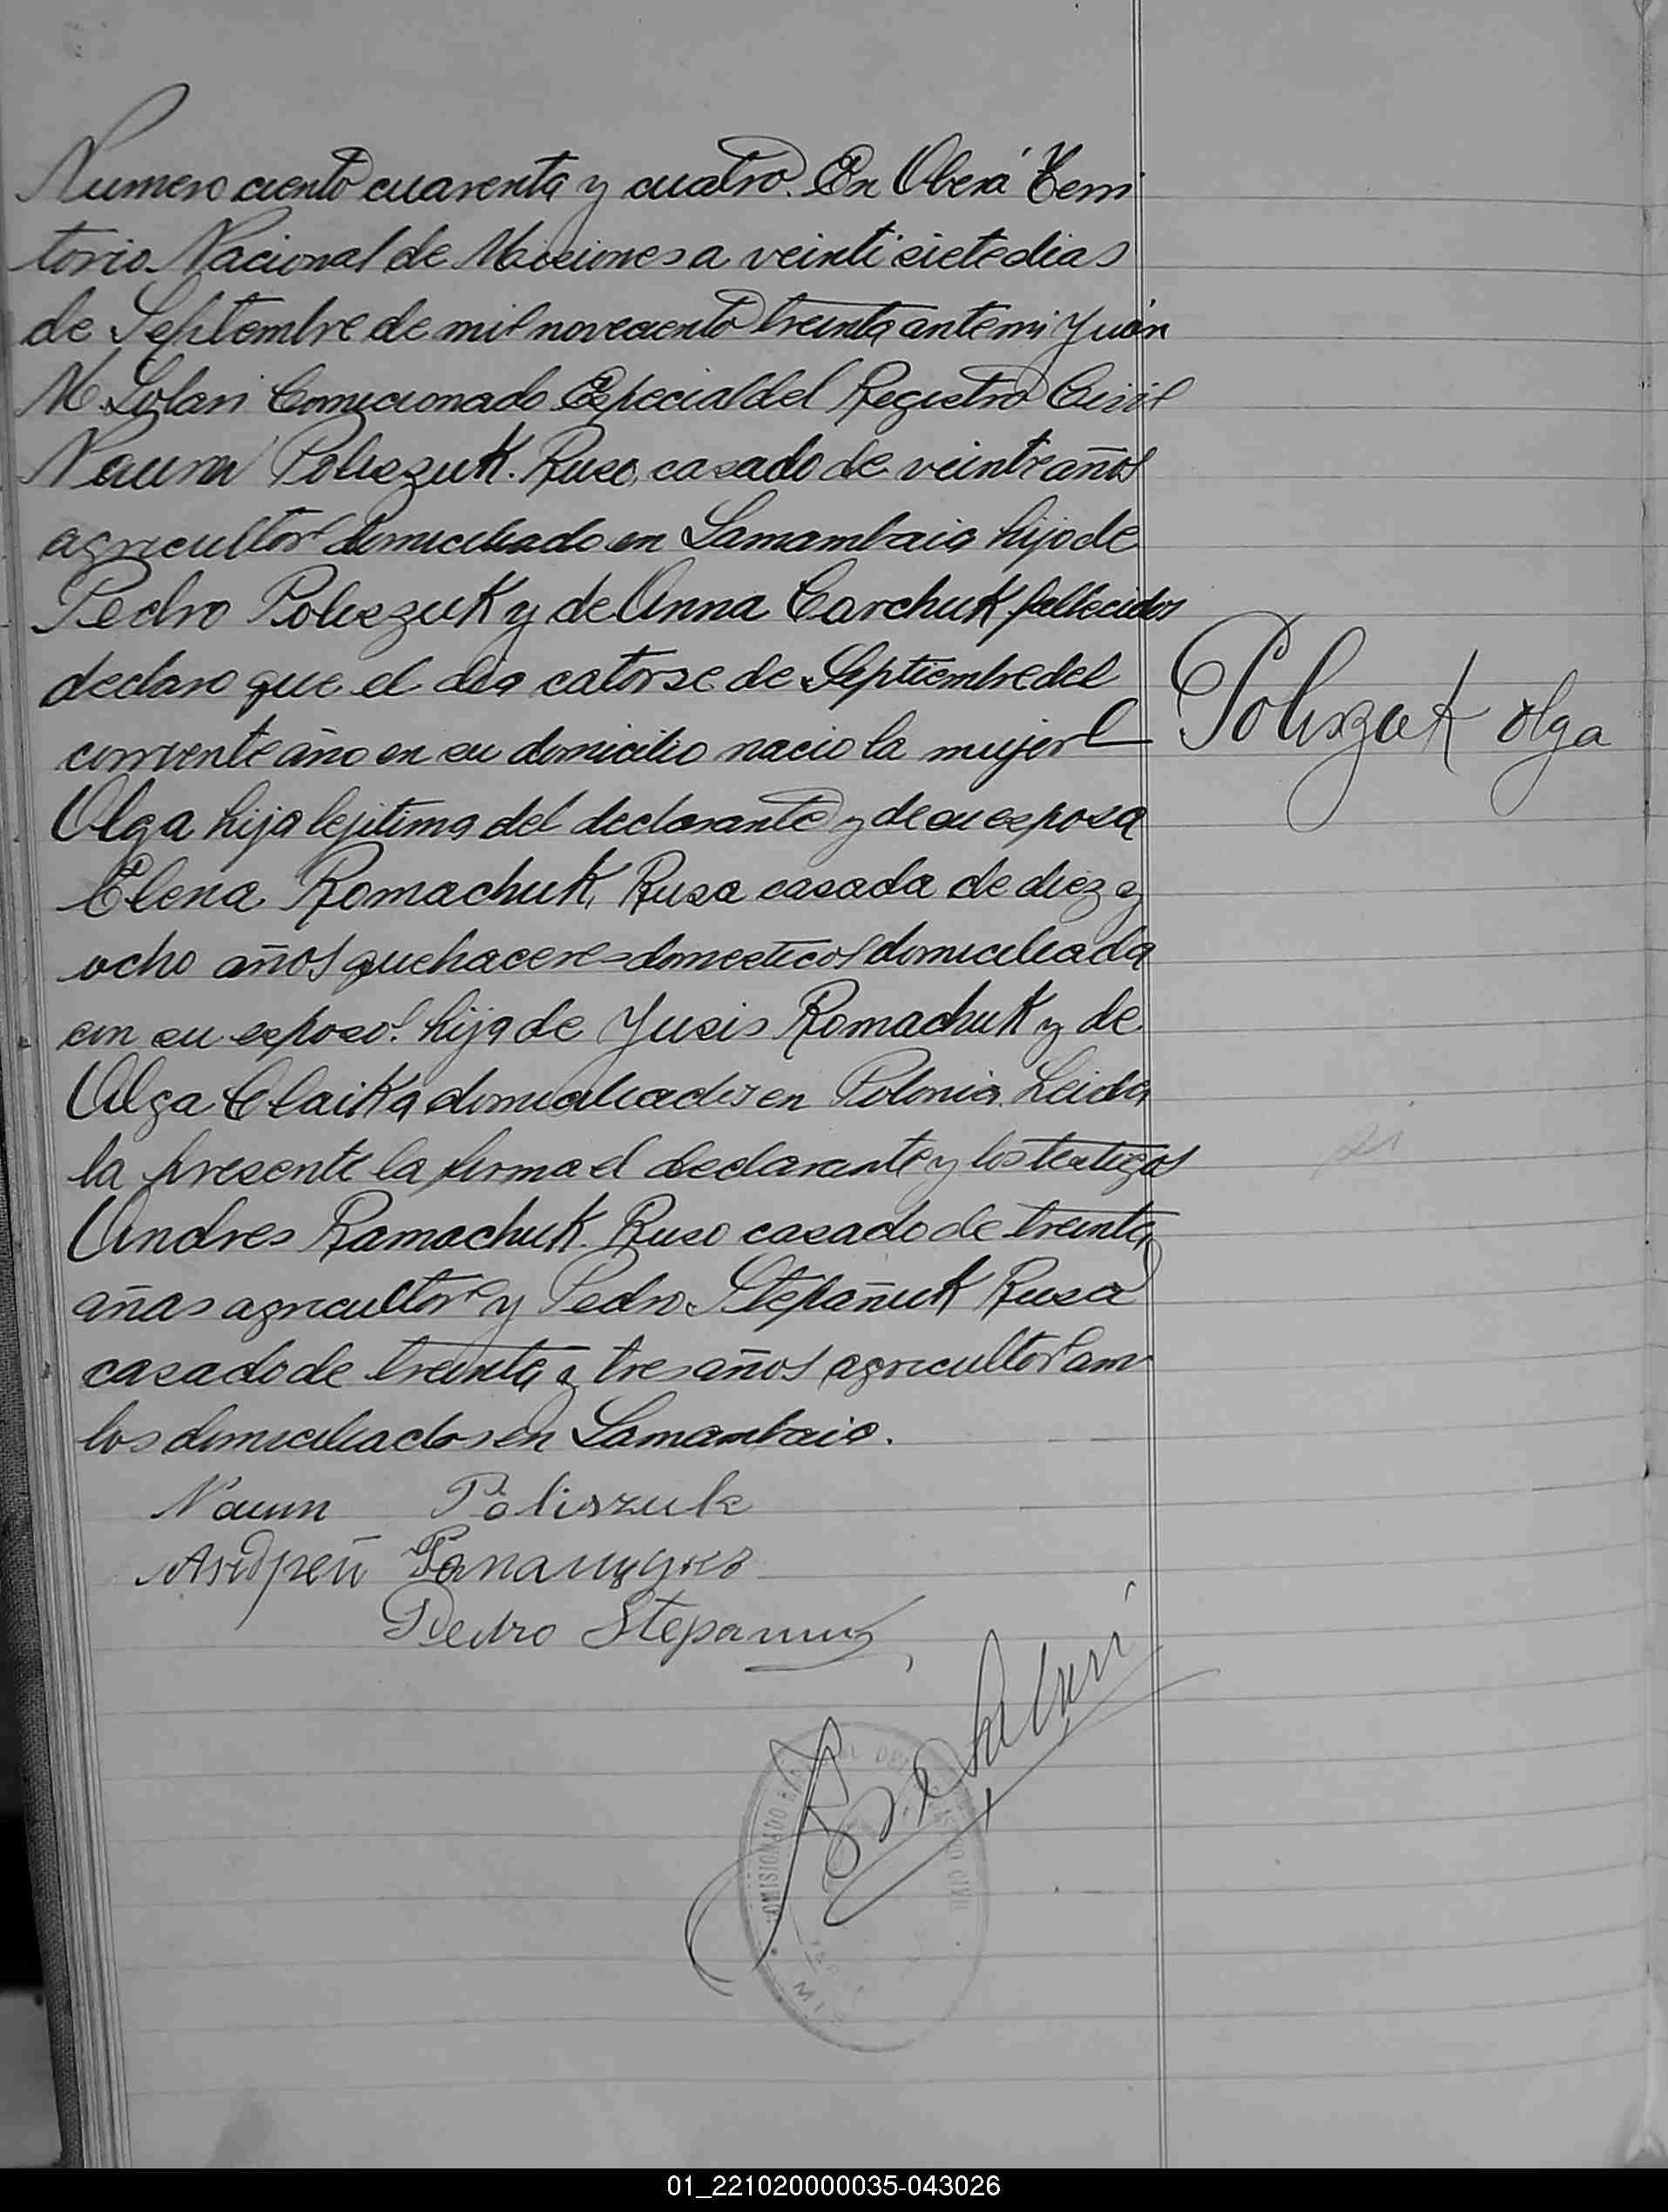 Numero ciento cuarenta y cuatro. En Oberá Terri
torio Nacional de Misiones a veinti siete dias
de Septembre de mil noveciento treinta ante mi Juan
M. Solari Comicionado Especial del Registro Civil
Naum Poliszuk. Ruso, casado de veinte años
agricultor domiciliado en Samambaia hijo de
Pedro Poliszuk y de Anna Carchuk fallecidos
declaro que el dia catorse de Septiembre del
corriente año en su domicilio nacio la mujer
Poliszuk Olga
Olga hija lejitima del declarante y de su esposa
Elena Romachuk, Rusa casada de diez y
ocho años quehaceres domesticos domiciliada
con su esposo. hija de Jusis Romachuk y de
Olga domiciliados en Polonia. Leida
la presente la firma el declarante y los testigos
Andres Ramachuk. Ruso casado de treinta
años agricultor y Pedro Stepañuk Ruso
casado de treinta y tres años agricultor am
bos domiciliados en Samambaia.
Naum Poliszuk
Андрей
Pedro
COMISIONADO CIVIL
01_221020000035-043026